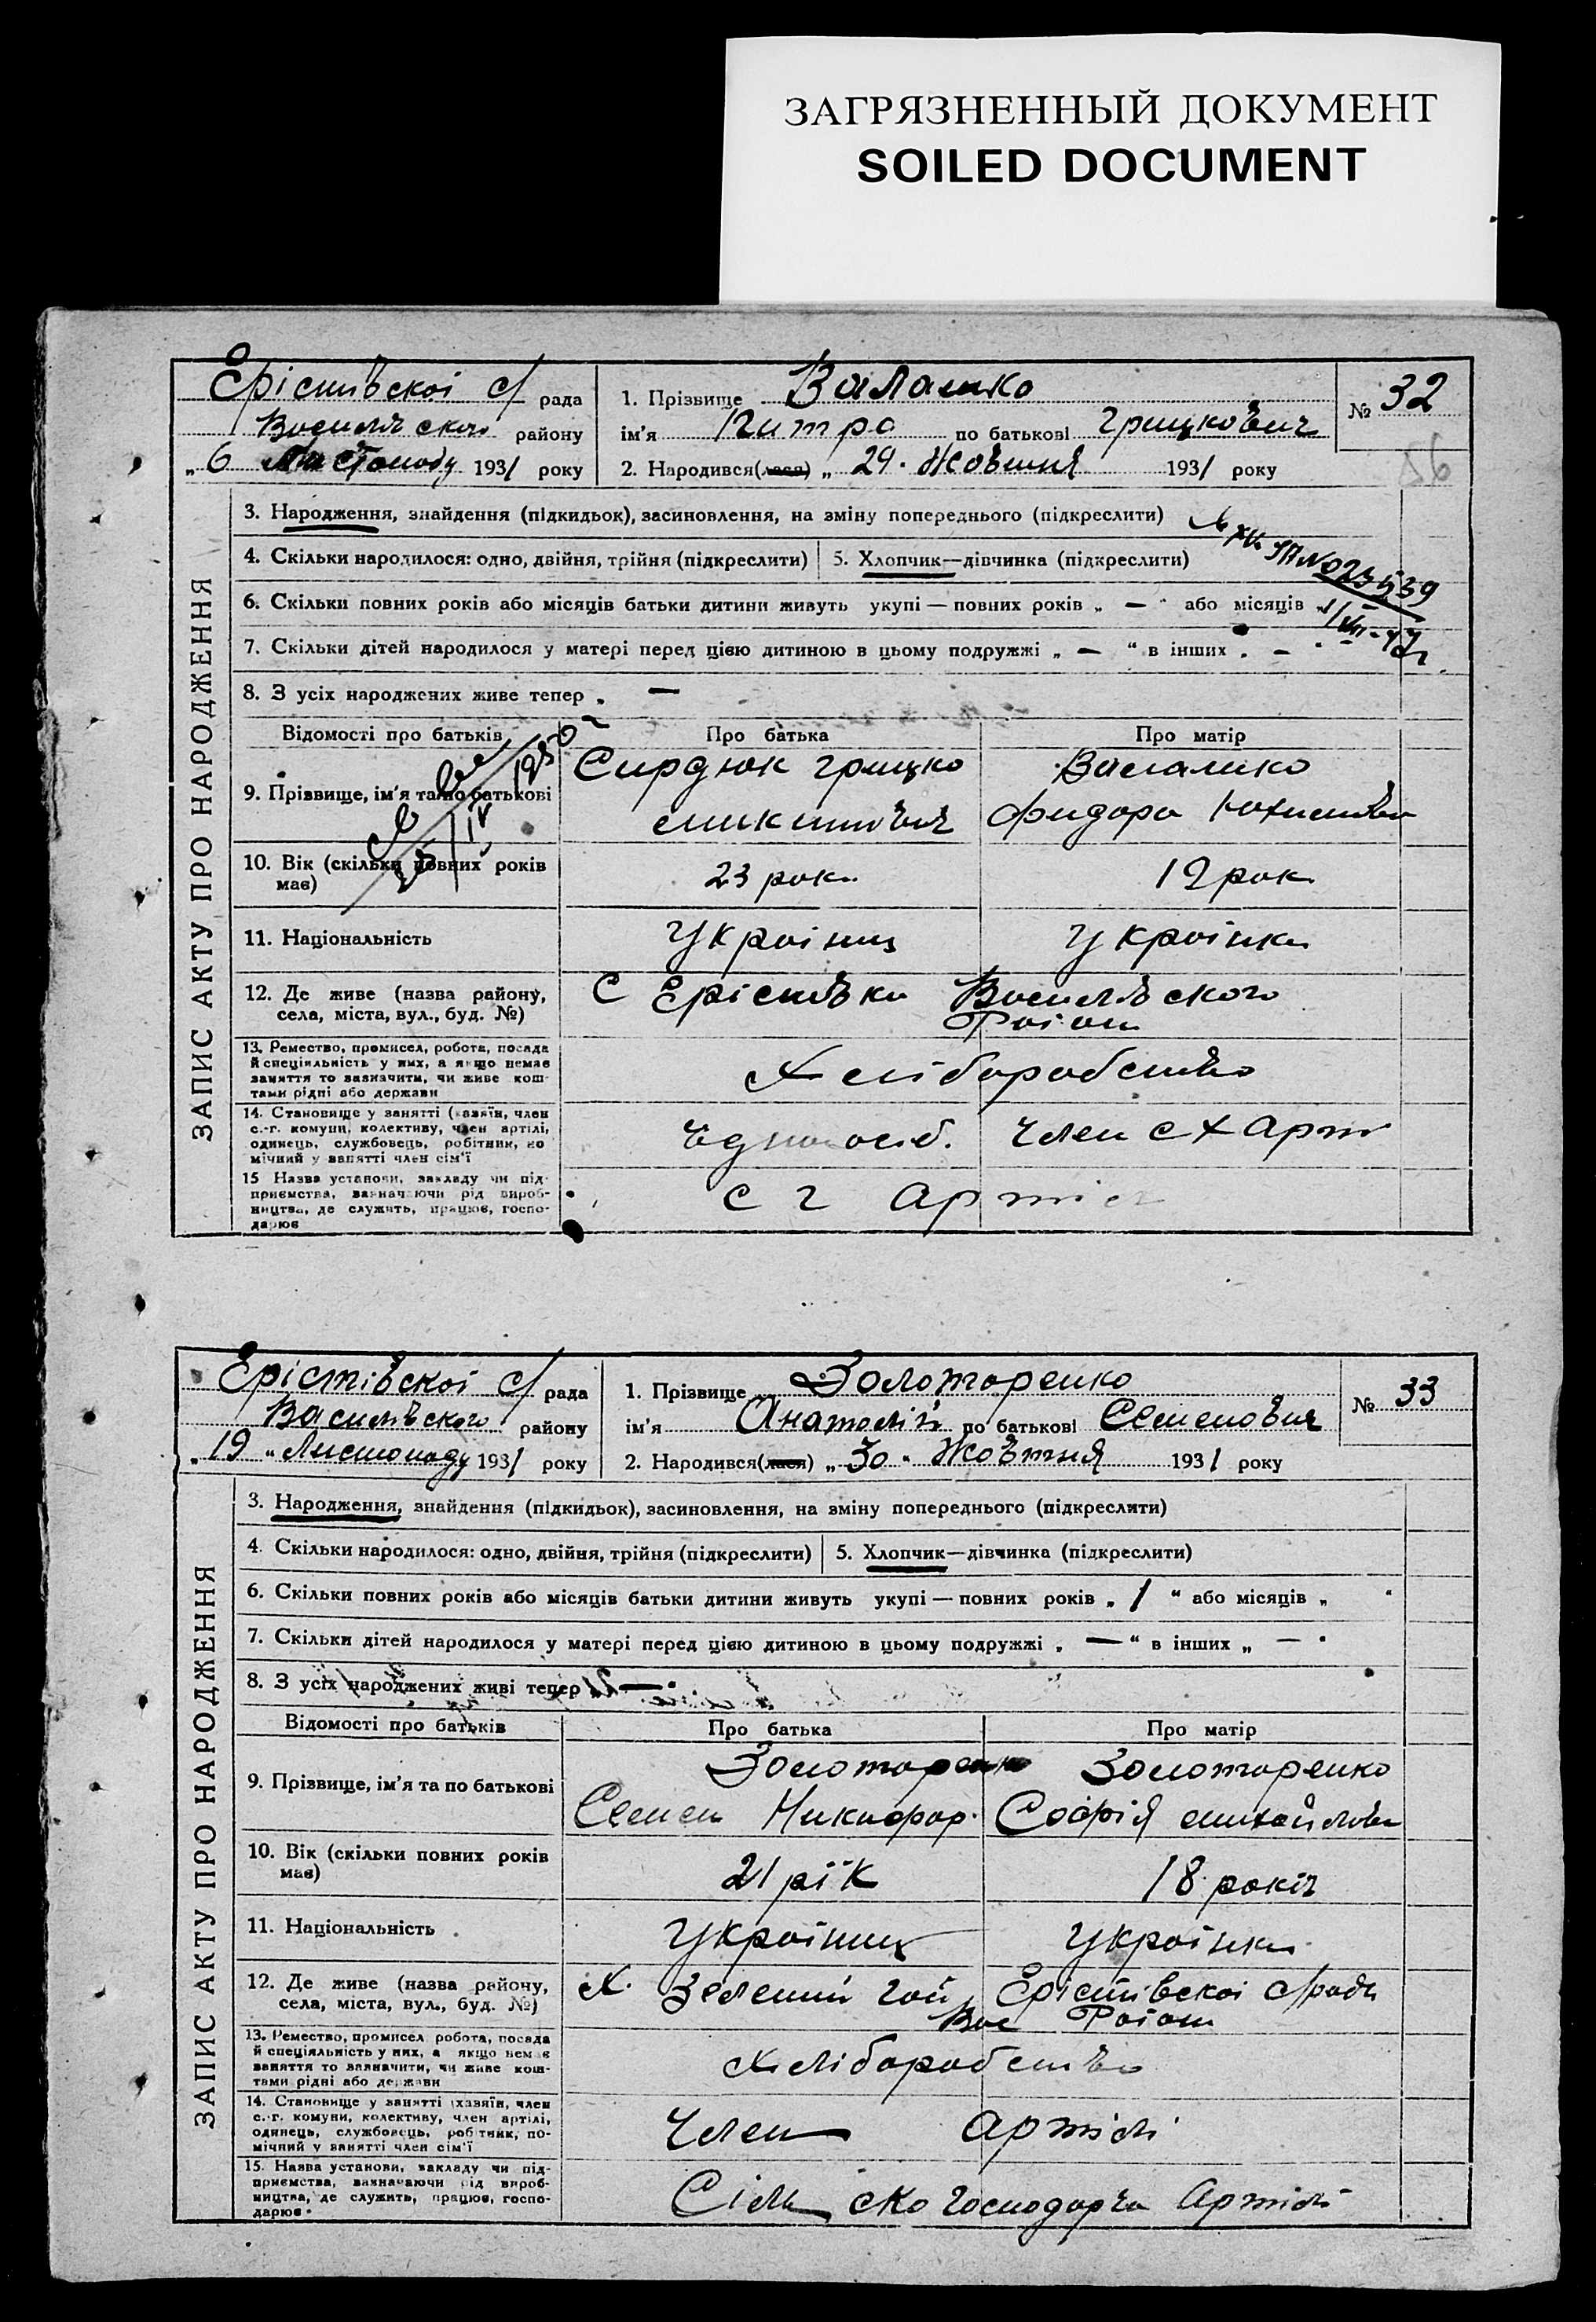 ЗАГРЯЗНЕННЫЙ ДОКУМЕНТ
SOILED DOCUMENT
Єрістівскоі с/ рада
Василівского району
„ 6 Листоподу 1931 року
1. Прізвище Валашко
ім'я Питро по батькові Грицкович
2. Народився(лася) „ 29. Жовтня 1931 року
№ 32
56
ЗАПИС АКТУ ПРО НАРОДЖЕННЯ
3. Народження, знайдення (підкидьок), засиновлення, на зміну попереднього (підкреслити)
4. Скільки народилося: одно, двійня, трійня (підкреслити) 5. Хлопчик—дівчинка (підкреслити)
№023539
6. Скільки повних років або місяців батьки дитини живуть укупі — повних років „ — " або місяців „
7. Скільки дітей народилося у матері перед цією дитиною в цьому подружжі „ — " в інших „ — "
8. З усіх народжених живе тепер „ —
Відомості про батьків Про батька Про матір
9. Прізвище, ім'я та по батькові
Сирдюк Грицко
микитович
10. Вік (скільки повних років
має)
23 роки
19 рок
11. Національність
Украінец
Украінка
12. Де живе (назва району,
села, міста, вул., буд. №)
С Єрістівка Василівского
Роіону
13. Ремество, промисел, робота, посада
й спеціяльність у них, а якщо немає
заняття то зазначити, чи живе кош-
тами рідні або держави
Хліборобство
14. Становище у занятті (хазяїн, член
с.-г. комуни, колективу, член артілі,
одинець, службовець, робітник, по
мічний у занятті член сім'ї
Член с х Арт
15 Назва установи, закладу чи під-
приємства, зазначаючи рід вироб-
ництва, де служить, працює, госпо-
дарює
с г артіл
Єрістівскоі с/ рада
Василівского району
„ 19 " Листопаду 1931 року
1. Прізвище Золотаренко
ім'я Анатолій по батькові Семенович
2. Народився(лася) „ 30 " Жовтня 1931 року
№ 33
ЗАПИС АКТУ ПРО НАРОДЖЕННЯ
3. Народження, знайдення (підкидьок), засиновлення, на зміну попереднього (підкреслити)
4. Скільки народилося: одно, двійня, трійня (підкреслити) 5. Хлопчик—дівчинка (підкреслити)
6. Скільки повних років або місяців батьки дитини живуть укупі — повних років „ 1 " або місяців „ "
7. Скільки дітей народилося у матері перед цією дитиною в цьому подружжі „ — " в інших „ — "
8. З усіх народжених живі тепер —
Відомості про батьків Про батька Про матір
9. Прізвище, ім'я та по батькові
Золотаренко
Семен Никифор.
Золотаренко
Софія михайловна
10. Вік (скільки повних років
має)
21 рік
18 років
11. Національність
Украінец
Украінка
12. Де живе (назва району,
села, міста, вул., буд. №)
Х. Зелений гай Єрістівскоі с/ради
Вас Роіону
13. Ремество, промисел робота, посада
й спеціяльність у них, а якщо немає
заняття то зазначити, чи живе кош-
тами рідні або держави
Хліборобство
14. Становище у занятті (хазяїн, член
с.-г. комуни, колективу, член артілі,
одинець, службовець, робітник, по-
мічний у занятті член сім'ї
Член артілі
15. Назва установи, закладу чи під-
приємства, зазначаючи рід вироб-
ництва, де служить, працює, госпо-
дарює
Сільско Господарча Артіль